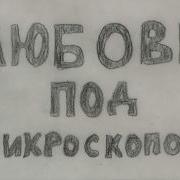 ЛЮБОВЬ
ПОД
ИКРОСКОПО